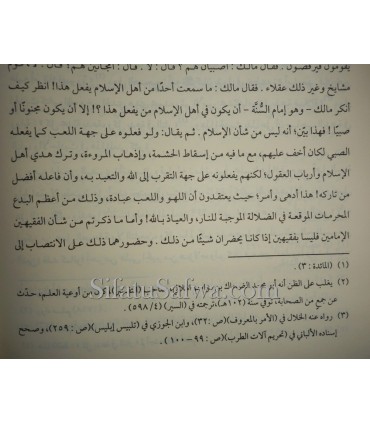 يقومون فيرقصون. فقال مالك: أصبيان هم؟ قال: لا. قال: أمجانين هم؟ قال: لا، قوم
مشايخ وغير ذلك عقلاء. فقال مالك: ما سمعت أحدًا من أهل الإسلام يفعل هذا! انظر كيف
أنكر مالك - وهو إمام السُّنَّة - أن يكون في أهل الإسلام من يفعل هذا؟! إلا أن يكون مجنونًا أو
صبيًا! فهذا بيِّن؛ أنه ليس من شأن الإسلام. ثم يقال: ولو فعلوه على جهة اللعب كما يفعله
الصبي لكان أخف عليهم، مع ما فيه من إسقاط الحشمة، وإذهاب المروءة، وترك هدي أهل
الإسلام وأرباب العقول؛ لكنهم يفعلونه على جهة التقرب إلى الله والتعبد به، وأن فاعله أفضل
من تاركه! هذا أدهى وأمر؛ حيث يعتقدون أن اللهو واللعب عبادة، وذلك من أعظم البدع
المحرمات الموقعة في الضلالة الموجبة للنار، والعياذ بالله! وأما ما ذكرتم من شأن الفقيهين
الإمامين فليسا بفقيهين إذا كانا يحضران شيئًا من ذلك. وحضورهما ذلك على الانتصاب إلى
(١) [المائدة: ٣].
(٢) يغلب على الظن أنه أبو محمد الضحاك بن مزاحم الهلالي، صاحب التفسير، كان من أوعية العلم، حدّث
عن جمع من الصحابة، توفي سنة (١٠٢هـ)، ترجمته في (السير) (٤/ ٥٩٨).
(٣) رواه عنه الخلال في (الأمر بالمعروف) (ص: ٣٢)، وابن الجوزي في (تلبيس إبليس) (ص: ٢٥٩)، وصحح
إسناده الألباني في (تحريم آلات الطرب) (ص: ٩٩-١٠٠).
SilatuSalwa.com